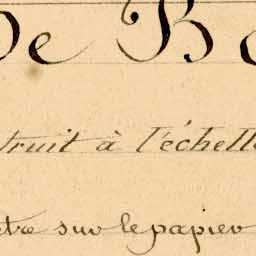 De B
truit à l'échelle
etre sur le papier